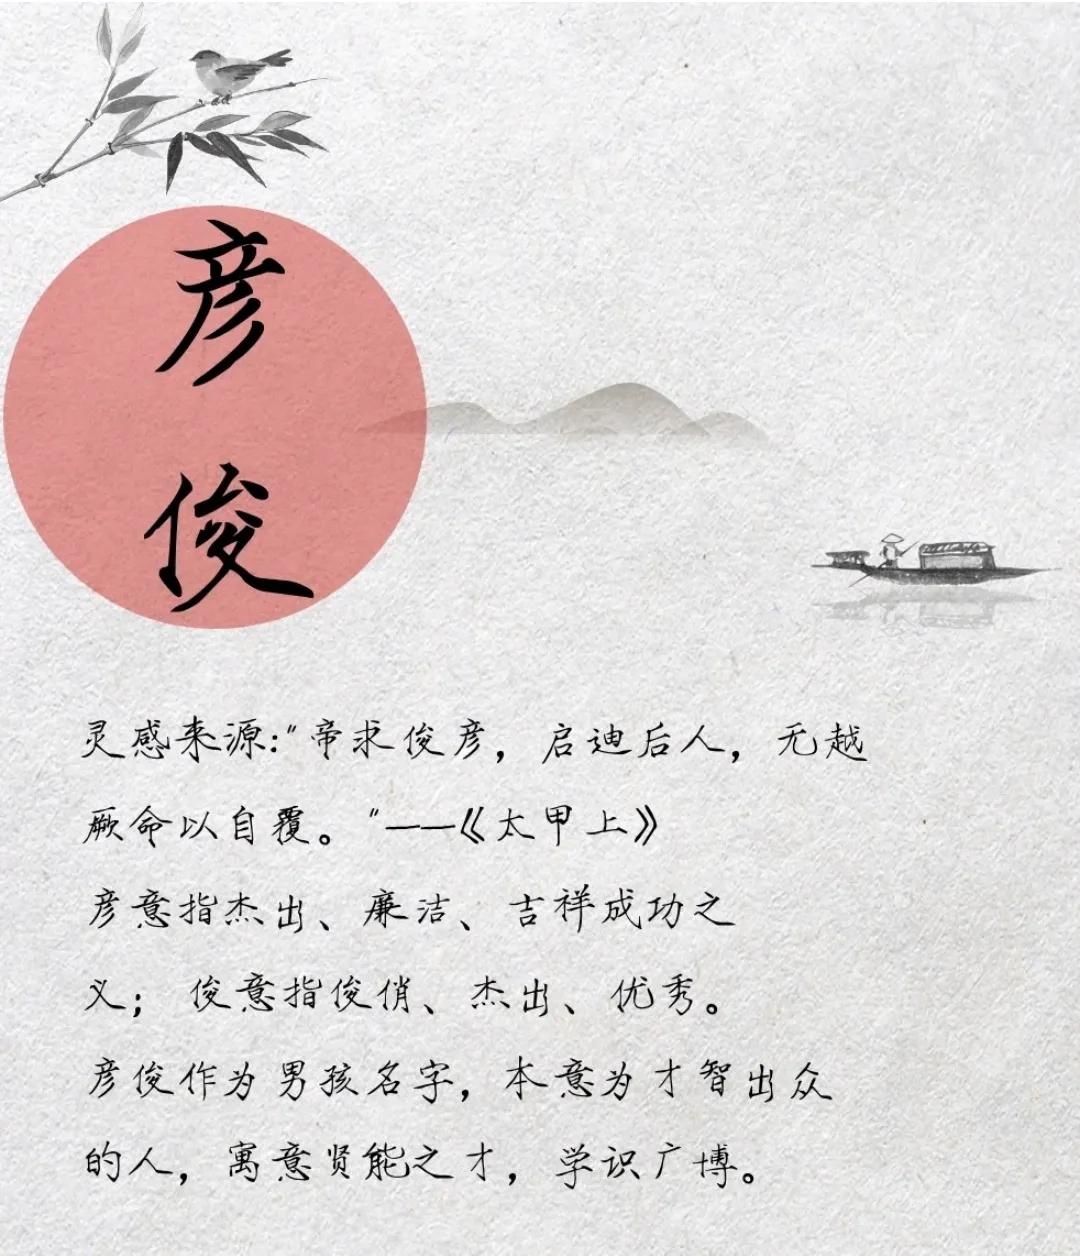 彦
俊
灵感来源:"帝求俊彦，启迪后人，无越
厥命以自覆。"——《太甲上》
彦意指杰出、廉洁、吉祥成功之
义； 俊意指俊俏、杰出、优秀。
彦俊作为男孩名字，本意为才智出众
的人，寓意贤能之才，学识广博。